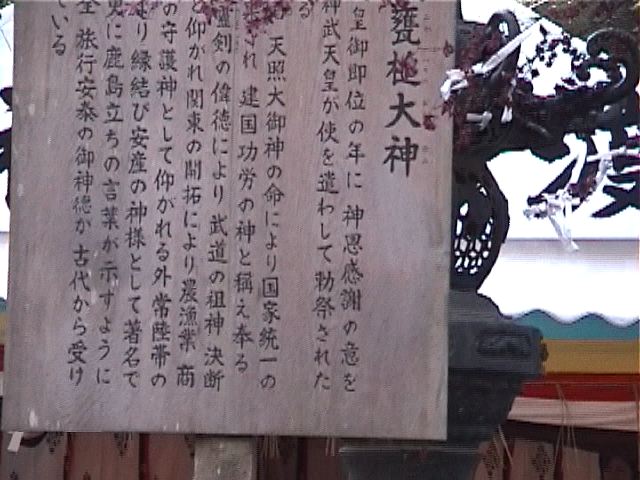 甕槌大神
皇御即位の年に 神恩感謝の意を
神武天皇が使を遣わして勅祭された
る
天照大御神の命により国家統一の
され 建国功労の神と稱え奉る
霊剣の偉徳により 武道の祖神 決断
と仰がれ関東の開拓により農漁業 商
の守護神として仰がれる外常陸帯の
より縁結び安産の神様として著名で
更に鹿島立ちの言葉が示すように
全 旅行安泰の御神徳が 古代から受け
ている